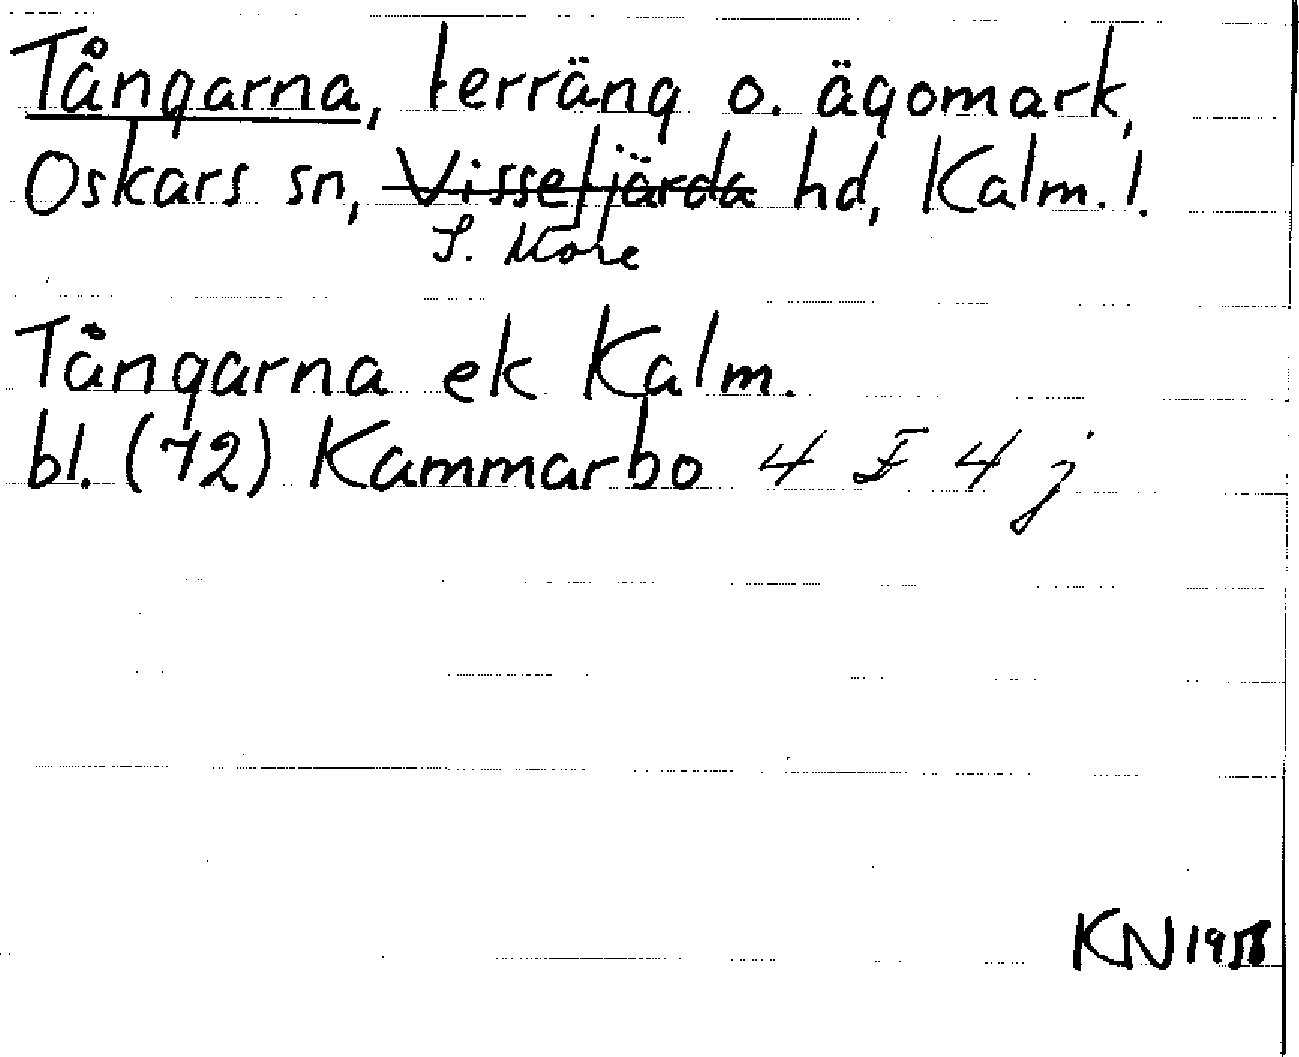 Tångarna, terräng o. ägomark,
Oskars sn, Vissefjärda hd, Kalm. l.
S. Möre
Tångarna ek Kalm.
bl. (72) Kammarbo 4 F 4 j
KN 1958